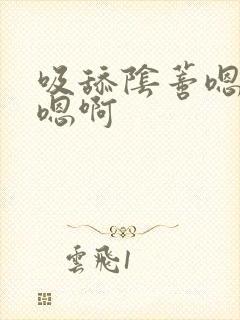 吸舔陰蓄嗯
嗯啊
雲飛1